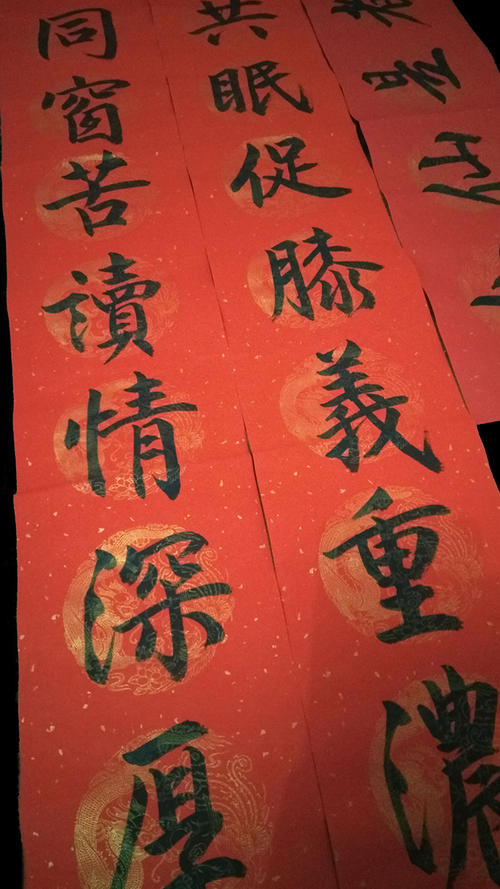 同窗苦讀情深厚
共眠促膝義重濃